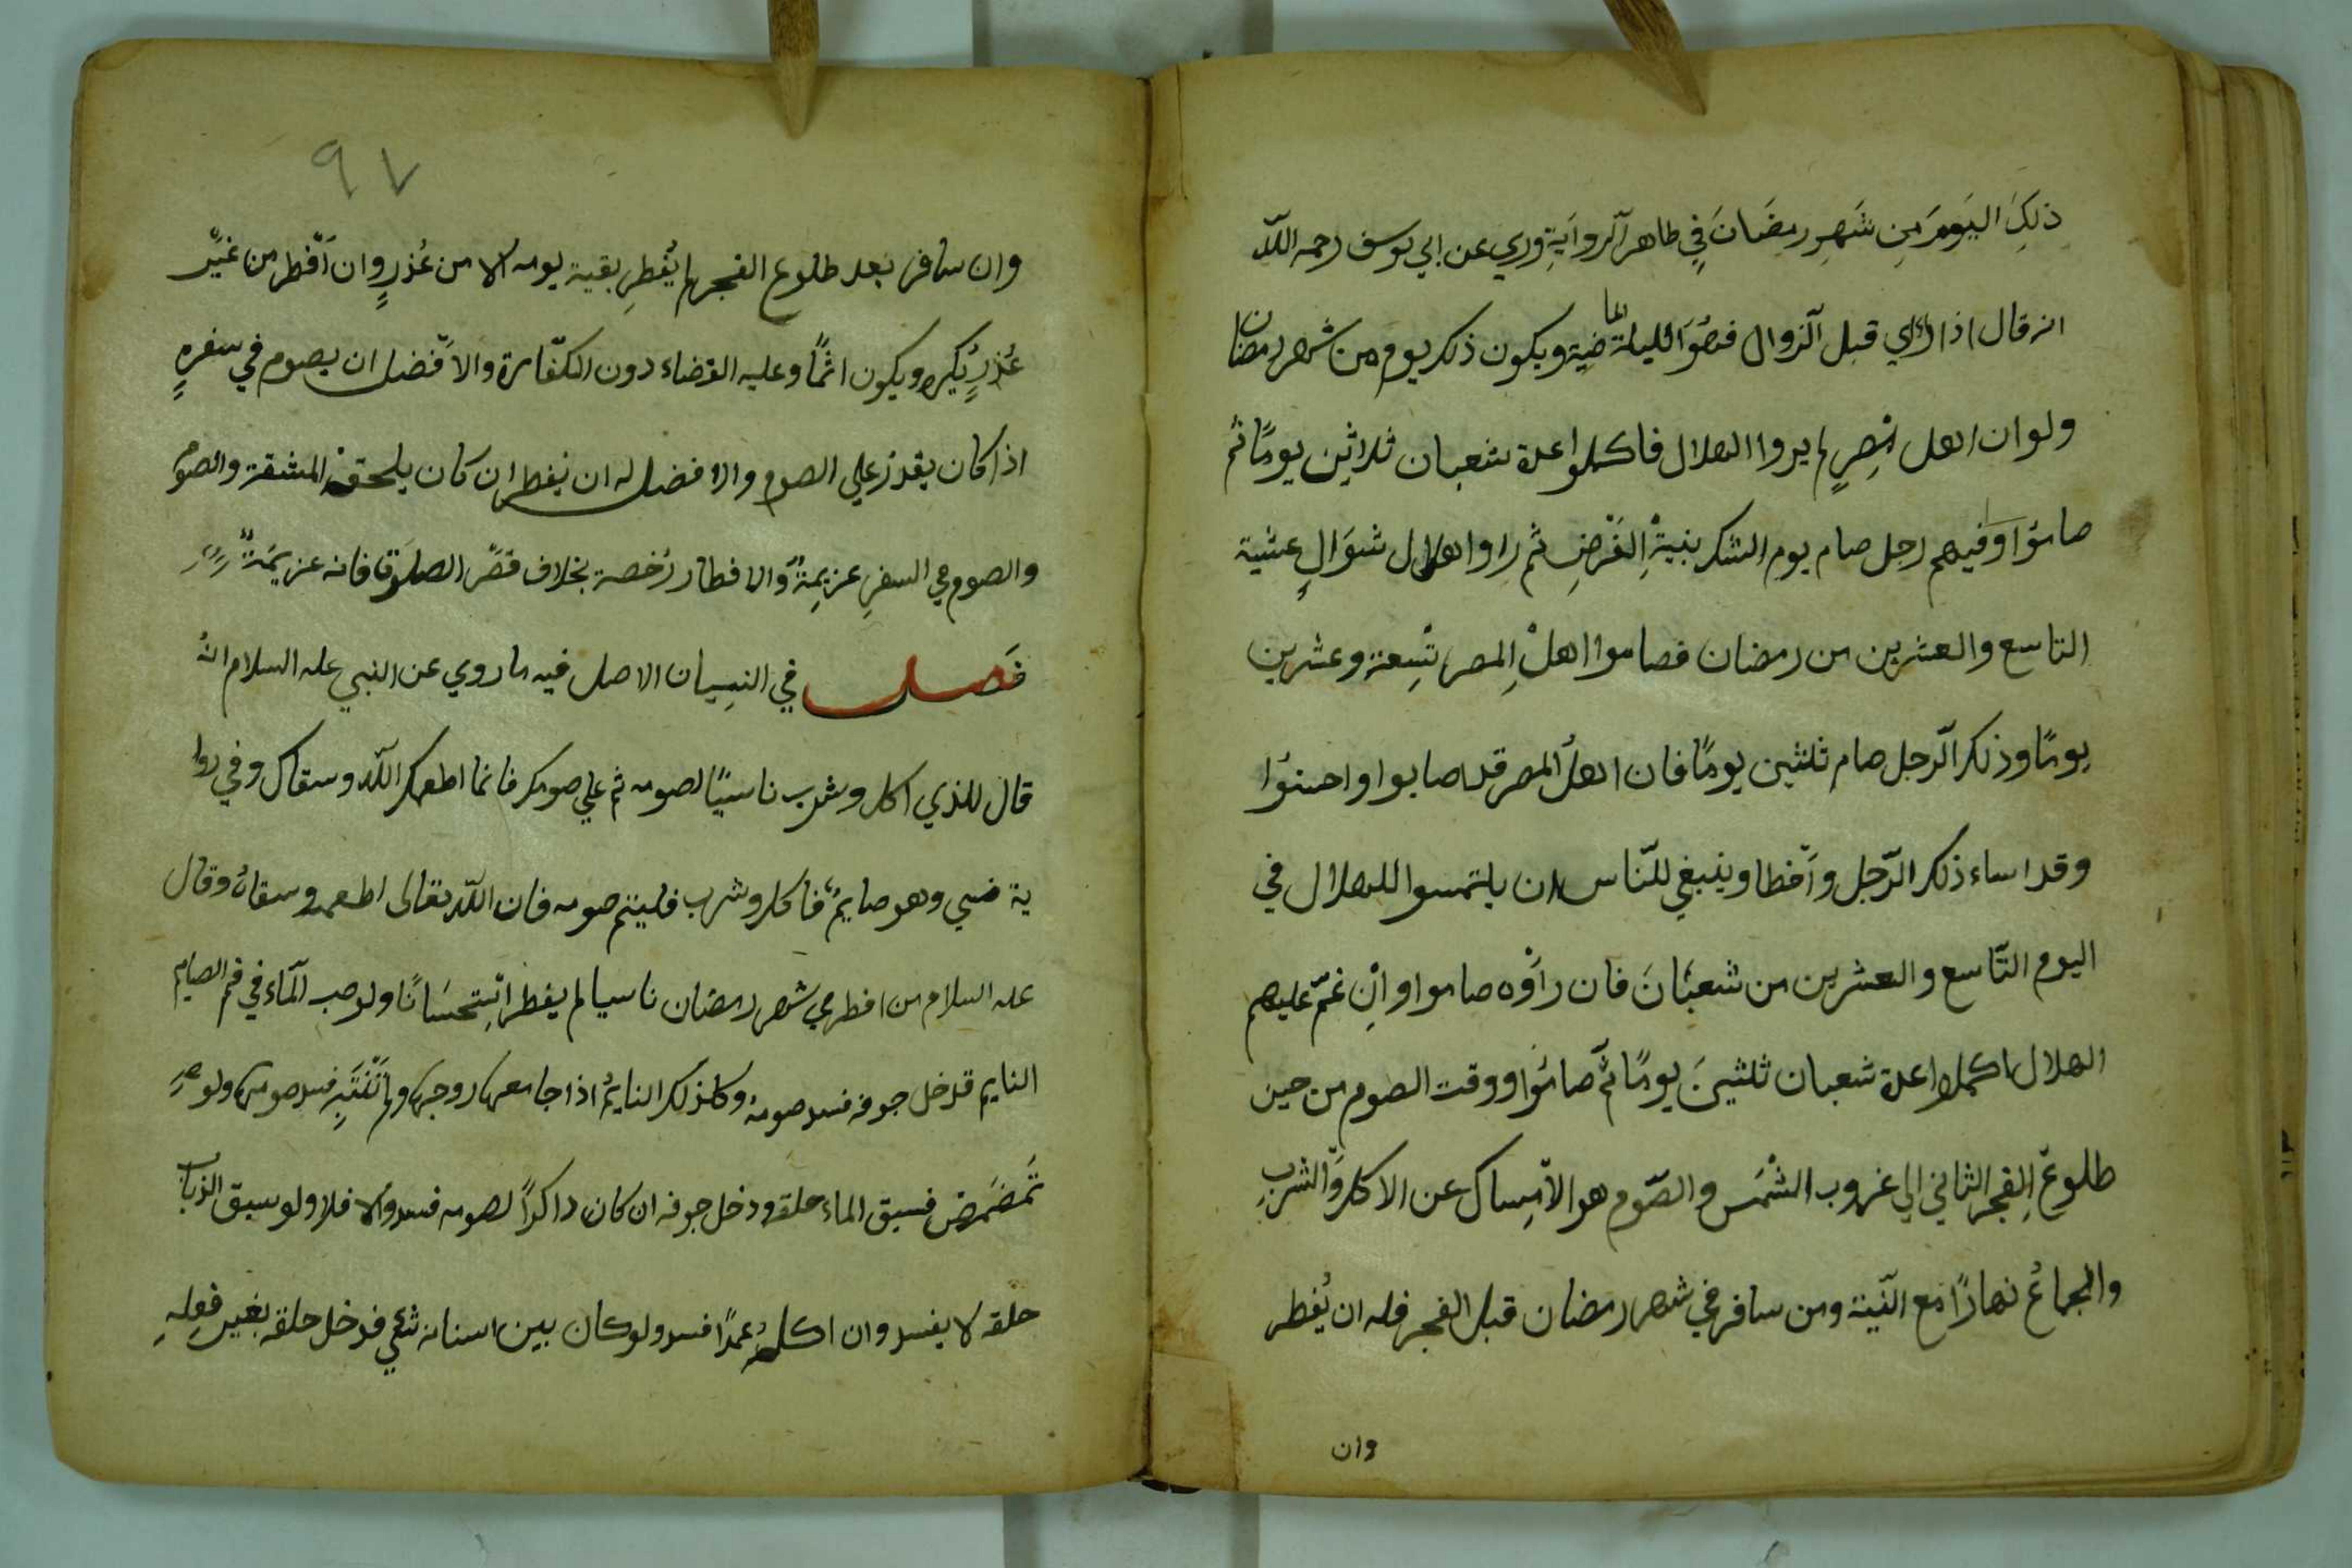 ذلِكَ اليَومَ مِن شَهرِ رمضَانَ في ظاهر الروايَةِ وروي عن ابي يوسف رحمه اللّه
انه قال اذا راي قبل الزوال فهُوَ لليلة الماضية ويكون ذلك يوم من شهر رمضان
ولو ان اهل مِصرٍ لم يروا الهلال فاكملوا عدة شعبان ثلاثين يومًا ثم
صاموُا وفيهم رجل صام يوم الشك بنيةِ الفَرْضِ ثم راوا هلال شوَالٍ عشية
التاسع والعشرين من رمضان فصاموا اهلُ المِصرِ تِسعة وعشرين
يومًا وذلك الرّجل صام ثلثين يومًا فان اهلُ المصر قد اصابوا واحسنوُا
وقد اساء ذلك الرّجل وأخطا وينبغي للنّاس ان يلتمسوا للهلال في
اليوم التّاسع والعشرين من شعبَانَ فان رأوْه صاموا وانِ غمّ عليهم
الهلال اكملوا عدة شعبان ثلثينَ يومًا ثمّ صاموُا ووقت الصوم من حين
طلوعِ الفجر الثاني الي غروب الشمْس والصّوم هو الامِساك عن الاكل والشرب
والجماعُ نهارًا مع النّية ومن سافر في شهر رمضان قبل الفجر فله ان يُفطر
وان
٩٧
وان سافر بعد طلوع الفجر لم يُفطرِ بقية يومه الا من عُذرٍ وان أفطر من غيَرِ
عُذرٍ يُكره ويكون اثمًا وعليه القضاء دون الكفّارة والافضل ان يصوم في سفرهِ
اذا كان يقدر علي الصوم والافضل له ان يفطر ان كان يلحقه المشقة والصوم
والصوم في السفرِ عزيمةٌ والافطار رُخصة بخلاف قصْر الصلوة فانه عزيمَةٌ
فَصل في النِسِيان الاصل فيه ما روي عن النبي عليه السلام انهُ
قال للذي اكل وشرب ناسيًا لصومه ثم علي صومك فانما اطعمك اللّه وسقاك وفي روا
ية نسي وهو صايمٌ فاكل وشرب فليتم صومه فان اللّه تعالى اطعمه وسقاهُ وقال
عليه السلام من افطر في شهر رمضان ناسيا لم يفطر اسِتحسَانًا ولو صب المآء في فم الصايم
النايم فدخل جوفه فسد صومهُ وكذلك النايمُ اذا جامعها زوجها ولم تَنْتَبِه فسد صومها ولو
تَمضمَض فسبق الماء حلقه ودخل جوفه ان كان ذاكرًا لصومه فسد والا فلا ولو سبق الذباب
حلقه لا يفسد وان اكلهُ عمدًا فسد ولو كان بين اسنانه شي فدخل حلقه بغير فعِلِهِ